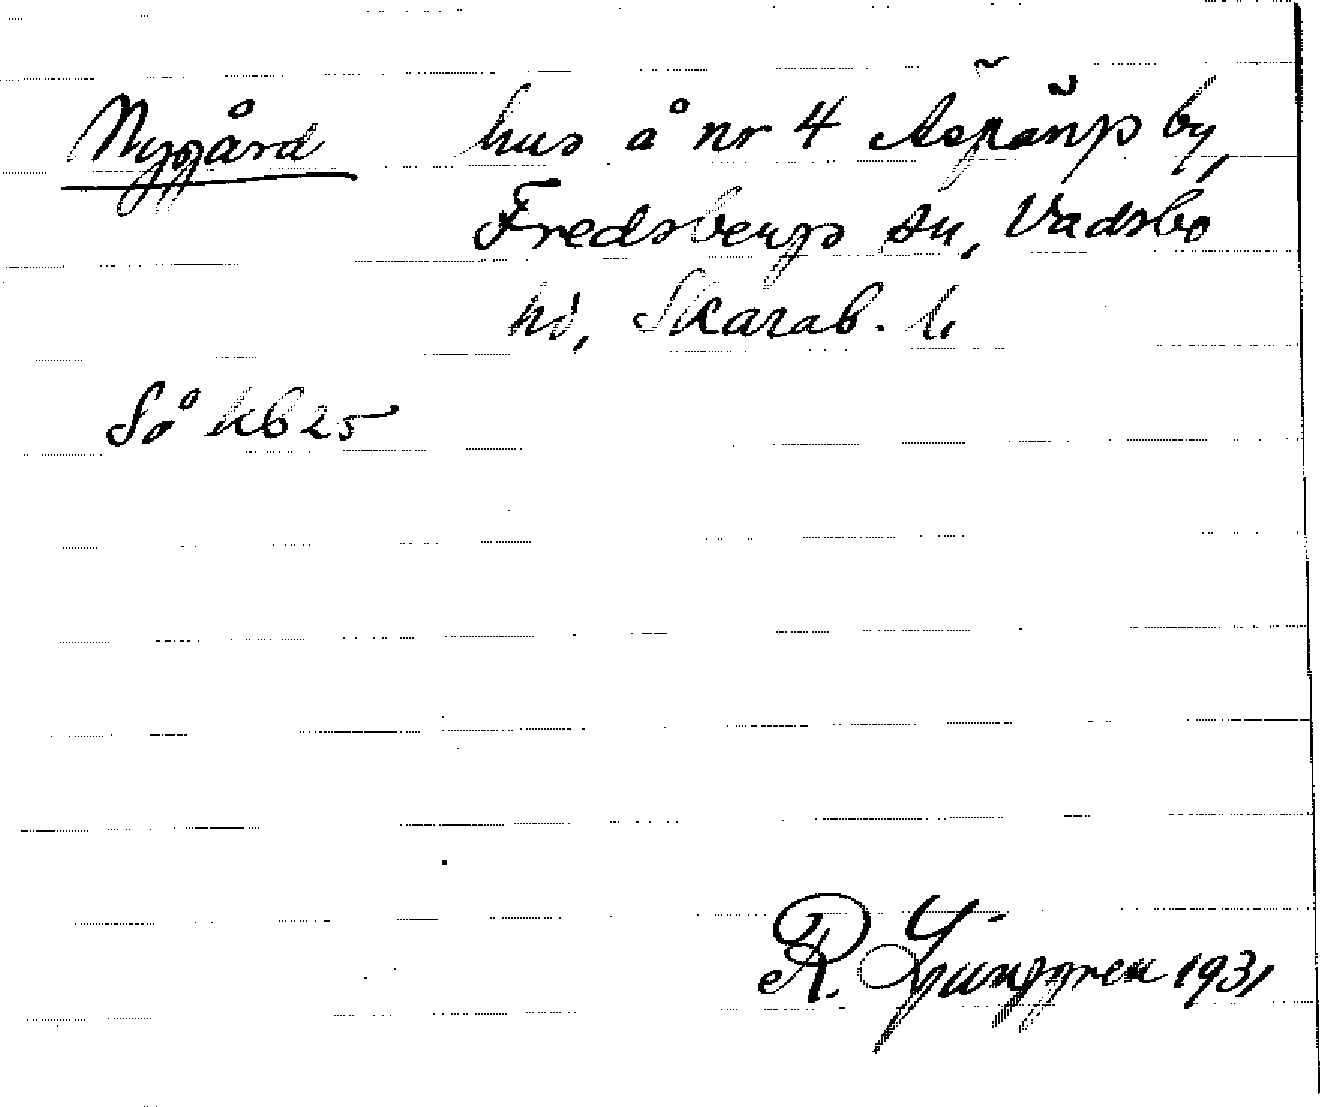 Nygård hus å nr 4 Aspänjs by,
Fredsbergs sn, Vadsbo
hd, Skarab. l.
Så kb 25
R. Ljunggren 1931